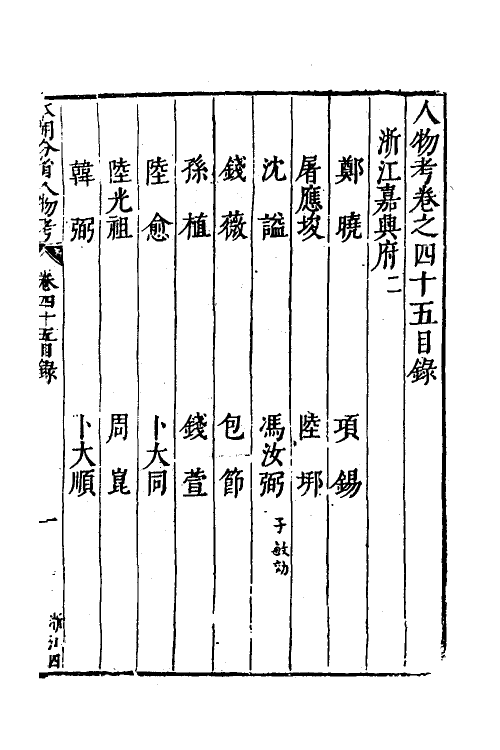 人物考卷之四十五目錄
浙江嘉興府二
鄭曉　項錫
屠應埈　陸邦
沈謐　馮汝弼 子敏功
錢薇　包節
孫植　錢萱
陸愈　卜大同
陸光祖　周崑
韓弼　卜大順
本朝分省人物考　卷四十五目錄　一　浙江四